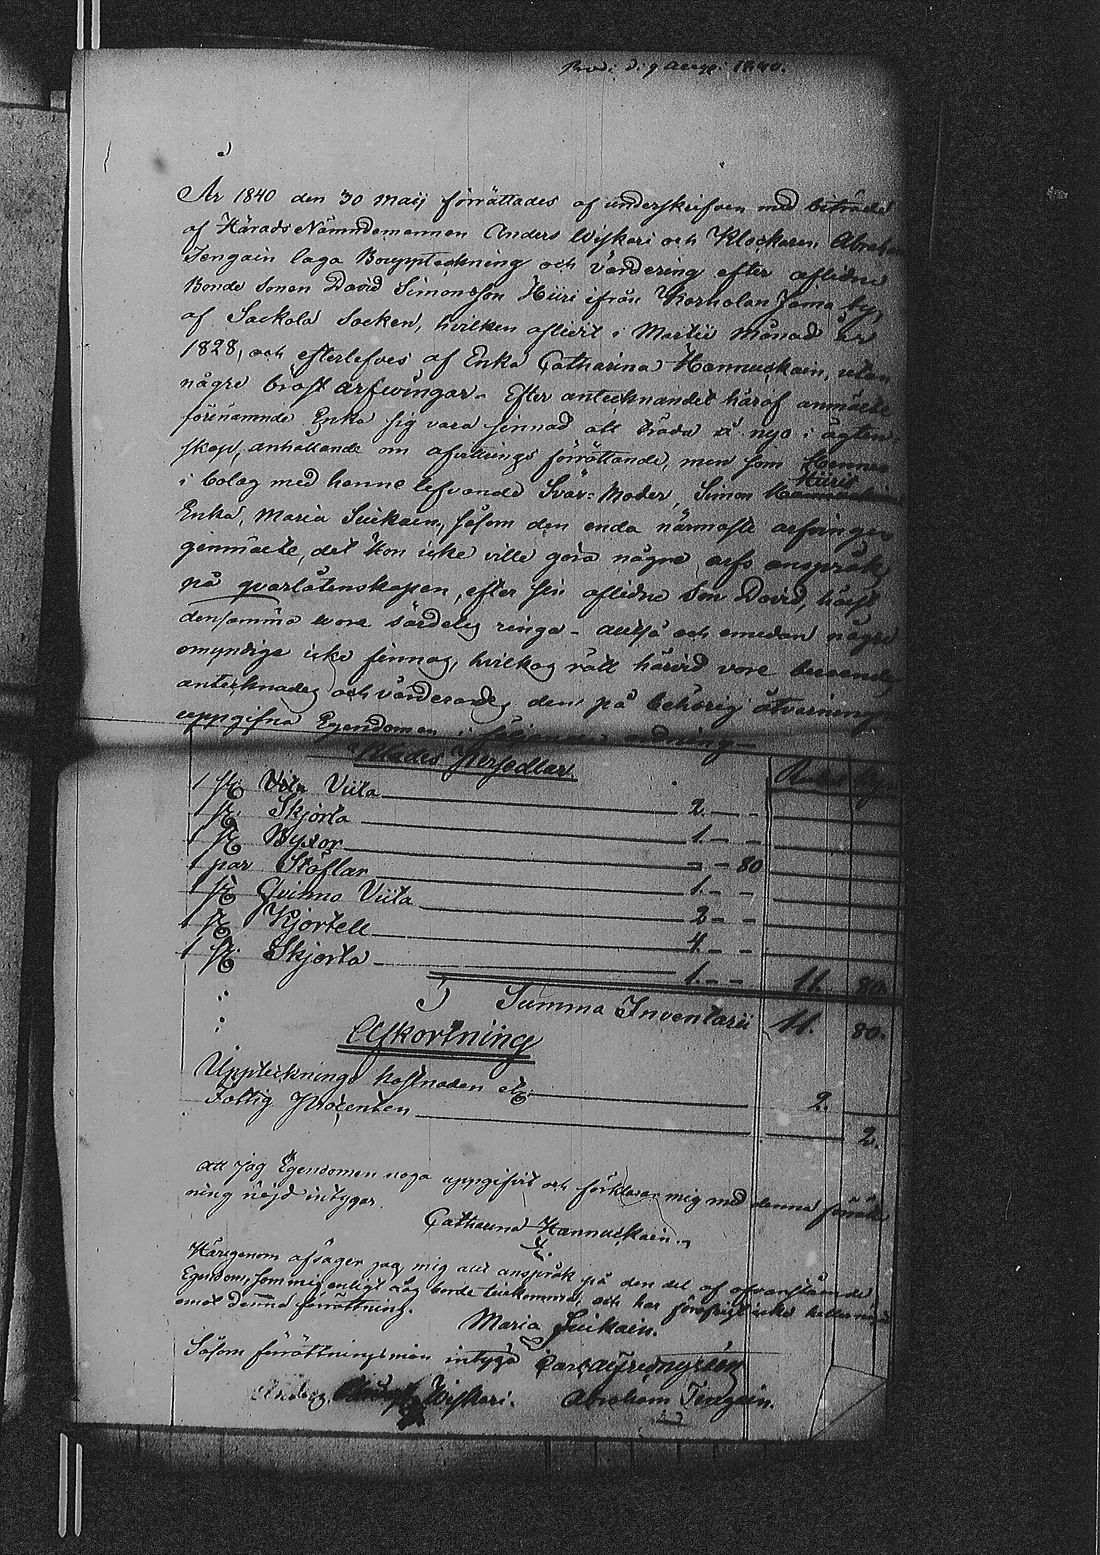 År 1840 den 30 Maij förrättades af underskrifven med biträde
af Härads Nämndemannen Anders Wijskari och Klockaren Abraham
Tengain laga Bouppteckning och värdering efter aflidne
Bonde Sonen David Simonsson Hiiri ifrån Korholan Jama by,
af Sackola Socken, hvilken aflidit i Martii Månad år
1828, och efterlefves af Enka Catharina Hannuckain, utan
några bröst arfwingar. Efter antecknandet häraf anmälte
förenämnde Enka sig vara sinnad att träda å nyo i ägten
skap, anhållande om afvittrings förrättande, men som Hennes
i bolag med henne lefvande Svär-Moder, Simon Hiiris
Enka, Maria Suikain, såsom den enda närmaste arfvingen
genmälte, det Hon icke ville göra några arfs anspråk
på qvarlåtenskapen, efter sin aflidne Son David, hälst
densamma vore särdeles ringa - altså och emedan några
omyndige icke finnas, hvilkas rätt härvid vore beroende
antecknades och värderades den på behörig åtvarning
uppgifna Egendomen i följande ordning
Klades Persedlar
1 st Vita Viita 2. - -
1 st Skjorta 1. - -
1 st Byxor - - 80
1 par Stöflar 1. - -
1 st Qvinno Viita 2 - -
1 st Kjortell 4. - -
1 st Skjorta 1. - - 11 80.
Summa Inventarii 11. 80.
Afkortning
Uppteknings kostnaden etc 2.
Fattig Procenten 2.
Att jag Egendomen noga uppgifvit och förklarar mig med denna förrätt
ning nöjd intygar.
Catharina Hannuckain.
Härigenom afsäger jag mig allt anspråk på den del af ofvanstående
Egendom, som mig enligt Lag borde tillkomma och har förøfrigt icke heller något
emot denna förrättning.
Maria Suikain.
Såsom förrättningsmän intyga Carl Alfred Nyrèen
Anders Wijskari. Abraham Tengain.